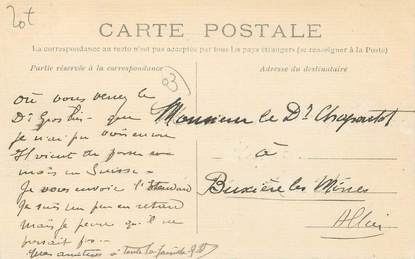 20t
CARTE POSTALE
La correspondance au recto n'est pas acceptée par tous les pays étrangers (se renseigner à la Poste)
Partie réservée à la correspondance
Adresse du destinataire
03
où vous venez le
Dr que
je n'ai pu voir encore
Il vient de passer un
mois en Suisse -
Je vous envoie l'Etendard
Je suis un peu en retard
mais je pense qu'il ne
paraît pas -
Mes amitiés à toute la famille
Monsieur le Dr Chapoutot
à
Buxière les Mines
Allier